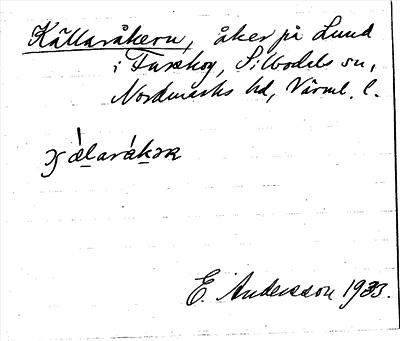 Källaråkern, åker på Lund
i Furskog, Silbodals sn,
Nordmarks hd, Värml. l.
E. Andersson 1933.